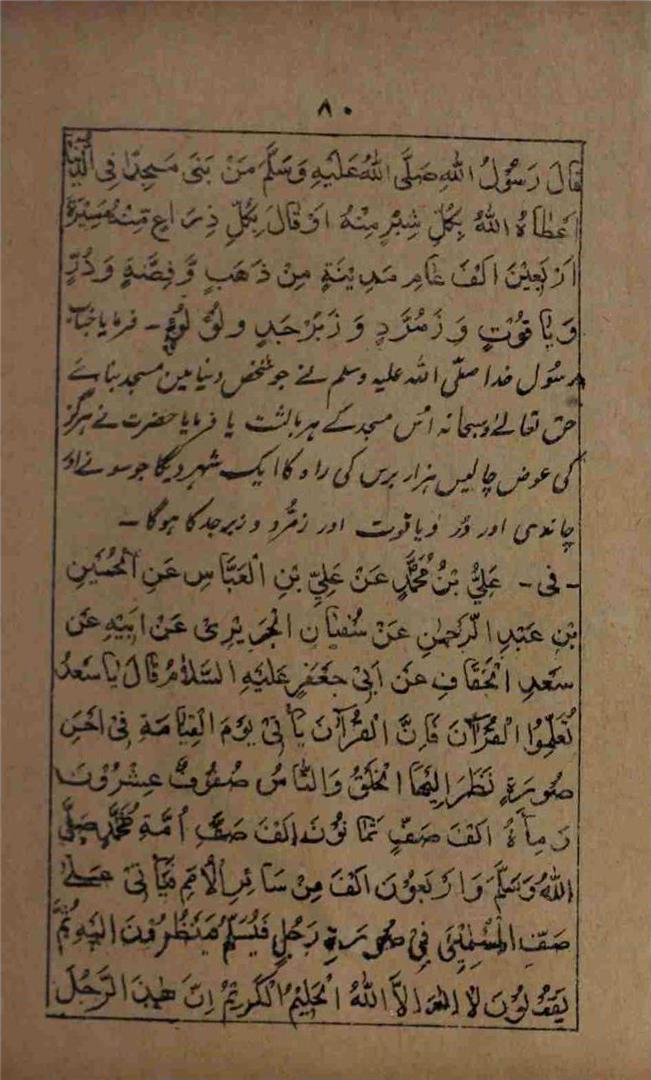 ۸۰
قَالَ رَسُوْلُ اللهِ صَلَّى اللهُ عَلَيْهِ وَسَلَّمَ مَنْ بَنٰى مَسْجِدًا فِى الدُّنْيَا
اَعْطَاهُ اللهُ بِكُلِّ شِبْرٍ مِنْهُ اَوْ قَالَ بِكُلِّ ذِرَاعٍ مِنْهُ مَسِيْرَةَ
اَرْبَعِيْنَ اَلْفَ عَامٍ مَدِيْنَةٍ مِنْ ذَهَبٍ وَّ فِضَّةٍ وَ دُرٍّ
وَ يَاقُوْتٍ وَ زَمُرَّدٍ وَ زَبَرْجَدٍ وَ لُؤْلُؤَةٍ ۔ فرمایا جناب
رسول خدا صلّی اللہ علیہ وسلم نے جو شخص دنیا مین مسجد بنائے
حق تعالےٰ وسبحانہ اُس مسجد کے ہر بالشت یا فرمایا حضرت نے ہر گز
کی عوض چالیس ہزار برس کی راہ کا ایک شہر دیگا جو سونے اور
چاندی اور دُر و یاقوت اور زمرّد و زبرجد کا ہوگا ۔
۔ فى ۔ عَلِيُّ بْنُ مُحَمَّدٍ عَنْ عَلِيِّ بْنِ الْعَبَّاسِ عَنِ الْحُسَيْنِ
بْنِ عَبْدِ الرَّحْمٰنِ عَنْ سُفْيَانِ الْجَرِيْرِىِّ عَنْ اَبِيْهِ عَنْ
سَعْدِ الْخَفَّافِ عَنْ اَبِىْ جَعْفَرٍ عَلَيْهِ السَّلَامُ قَالَ يَا سَعْدُ
تَعَلَّمُوا الْقُرْآنَ فَاِنَّ الْقُرْآنَ يَأْتِىْ يَوْمَ الْقِيَامَةِ فِىْ اَحْسَنِ
صُوْرَةٍ نَظَرَ اِلَيْهَا الْخَلْقُ وَالنَّاسُ صُفُوْفٌ عِشْرُوْنَ
وَ مِأَةُ اَلْفَ صَفٍّ ثَمَانُوْنَ اَلْفَ صَفٍّ اُمَّةِ مُحَمَّدٍ صَلَّى
اللهُ وَسَلَّمَ وَ اَرْبَعُوْنَ اَلْفَ مِنْ سَائِرِ الْاُمَمِ فَيَأْتِىْ عَلٰى
صَفِّ الْمُسْلِمِيْنَ فِىْ صُوْرَةِ رَجُلٍ فَيُسَلِّمُ فَيَنْظُرُوْنَ اِلَيْهِ ثُمَّ
يَقُوْلُوْنَ لَا اِلٰهَ اِلَّا اللهُ الْحَلِيْمُ الْكَرِيْمُ اِنَّ هٰذَا الرَّجُلَ